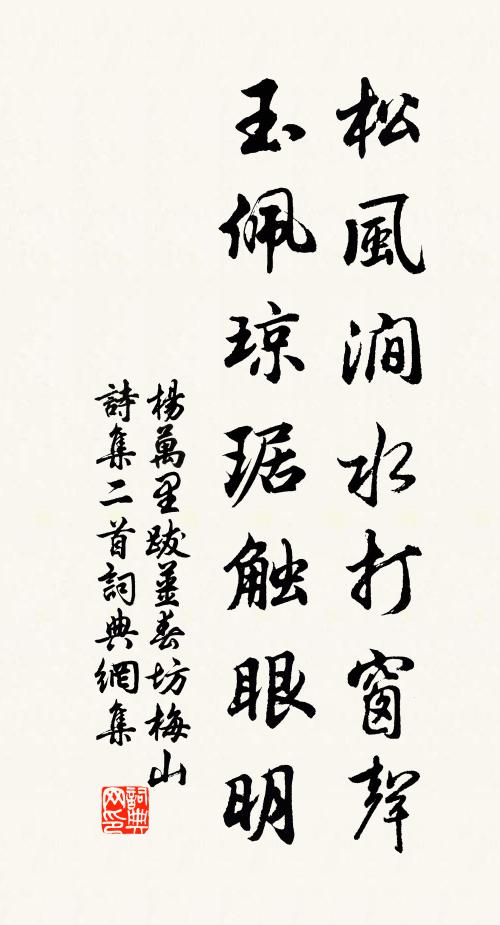 松風澗水打窗聲
玉佩琼琚触眼明
楊萬里跋姜春坊梅山
詩集二首詞典網集
詞典網印